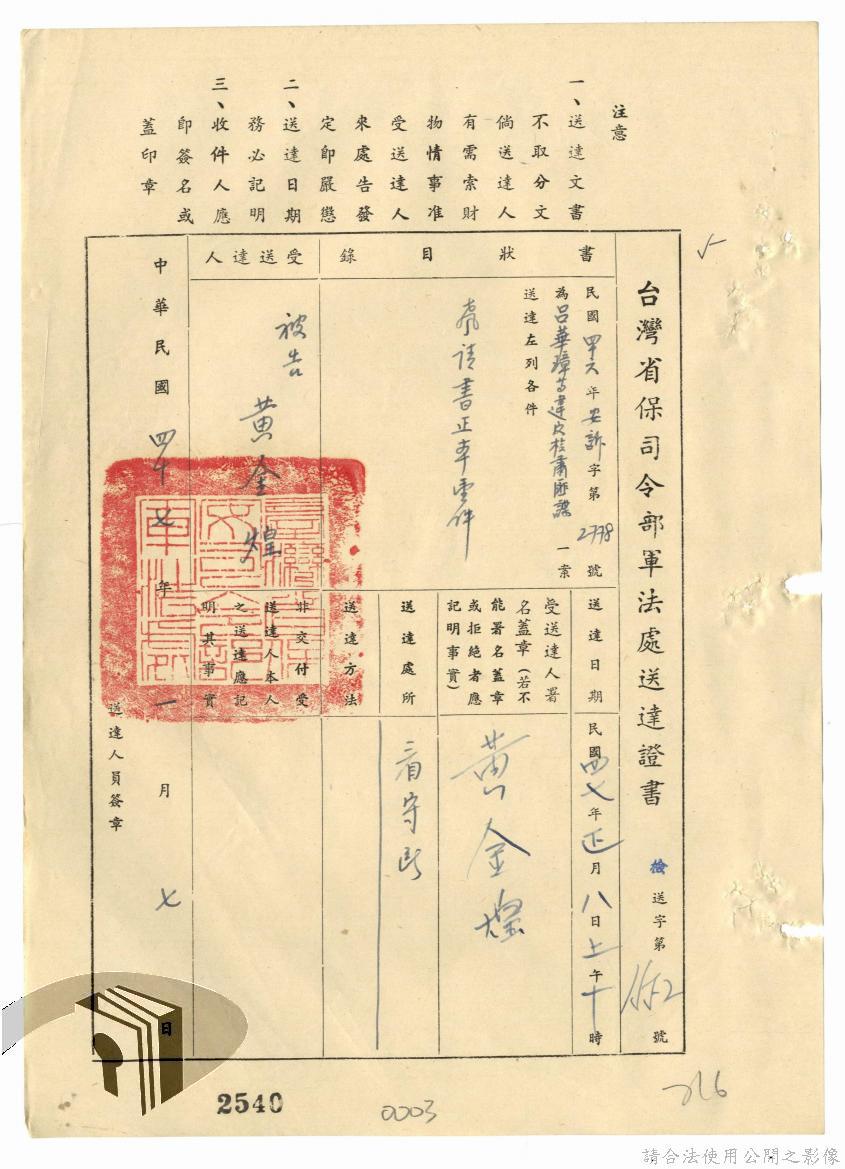 注意
一、送達文書
不取分文
倘送達人
有需索財
物情事准
受送達人
來處告發
定即嚴懲
二、送達日期
務必記明
三、收件人應
即簽名或
蓋印章
台灣省保司令部軍法處送達證書
檢送字第1152號
書狀目錄
民國四六年安訴字第2778號
為呂華璋等違反檢肅匪諜一案
送達左列各件
聲請書正本壹件
受送達人
被告 黃金煌
送達日期
民國四七年正月八日上午十時
受送達人署
名蓋章(若不
能署名蓋章
或拒絕者應
記明事實)
黃金煌
送達處所
看守所
送達方法
非交付受
送達人本人
之送達應記
明其事實
中華民國四十七年一月七日
送達人員簽章
2540
0003
請合法使用公開之影像